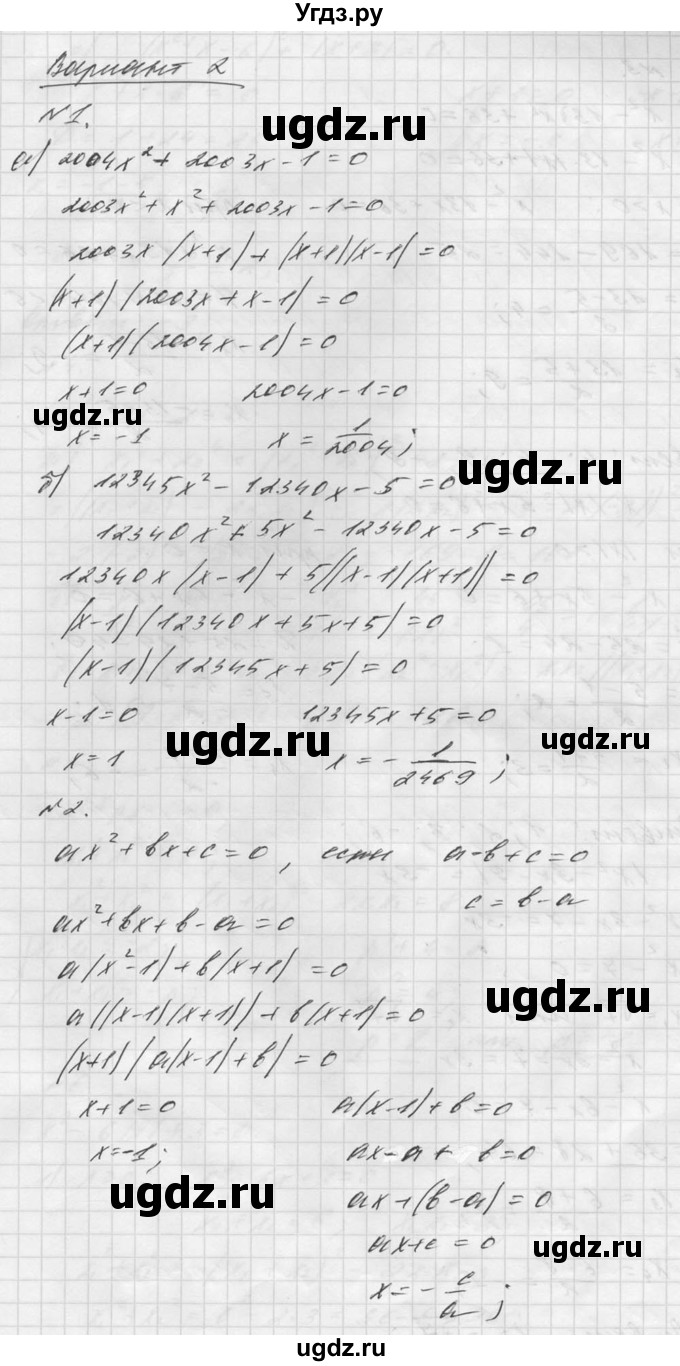 Угдз.ру
Вариант 2
№1.
а) 2004x² + 2003x - 1 = 0
2003x² + x² + 2003x - 1 = 0
2003x (x+1) + (x+1)(x-1) = 0
(x+1) (2003x + x - 1) = 0
(x+1) (2004x - 1) = 0
x+1=0 2004x-1=0
x = -1 x = 1/2004;
б) 12345x² - 12340x - 5 = 0
12340x² + 5x² - 12340x - 5 = 0
12340x (x-1) + 5((x-1)(x+1)) = 0
(x-1) (12340x + 5x + 5) = 0
(x-1) (12345x + 5) = 0
x-1=0 12345x+5=0
x = 1 x = - 1/2469;
№2.
ax² + bx + c = 0, если a-b+c=0
c = b-a
ax² + bx + b - a = 0
a(x²-1) + b(x+1) = 0
a((x-1)(x+1)) + b(x+1) = 0
(x+1) (a(x-1) + b) = 0
x+1=0 a(x-1)+b=0
x=-1; ax-a+b=0
ax+(b-a)=0
ax+c=0
x = - c/a;
ugdz.ru
ugdz.ru
ugdz.ru
ugdz.ru
ugdz.ru
ugdz.ru
ugdz.ru
ugdz.ru
ugdz.ru